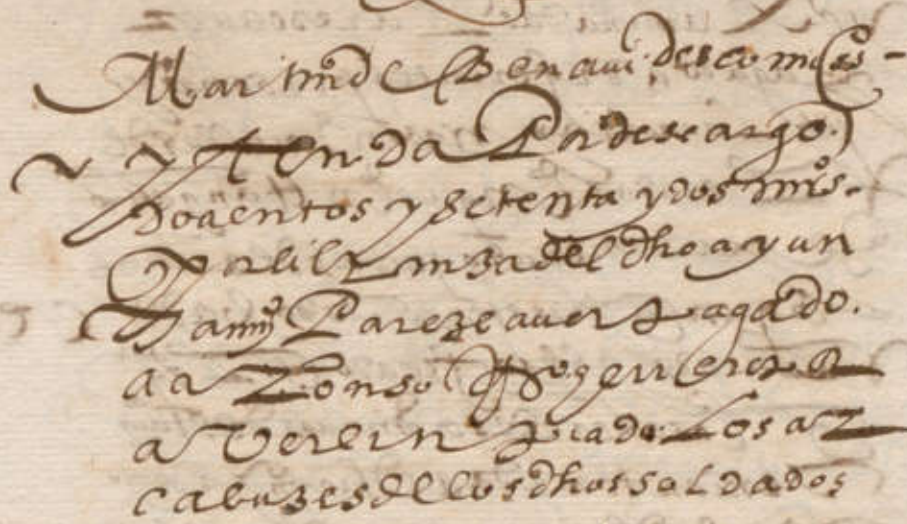 Martin de Benavides como es-
yten da Pa descargo
docientos y setenta y dos mrs.
Por libranza del dho ayun
tamyo Pareze aver Pagado.
a alonso
a ver linpiado Los ar
cabuzes de los dhos soldados